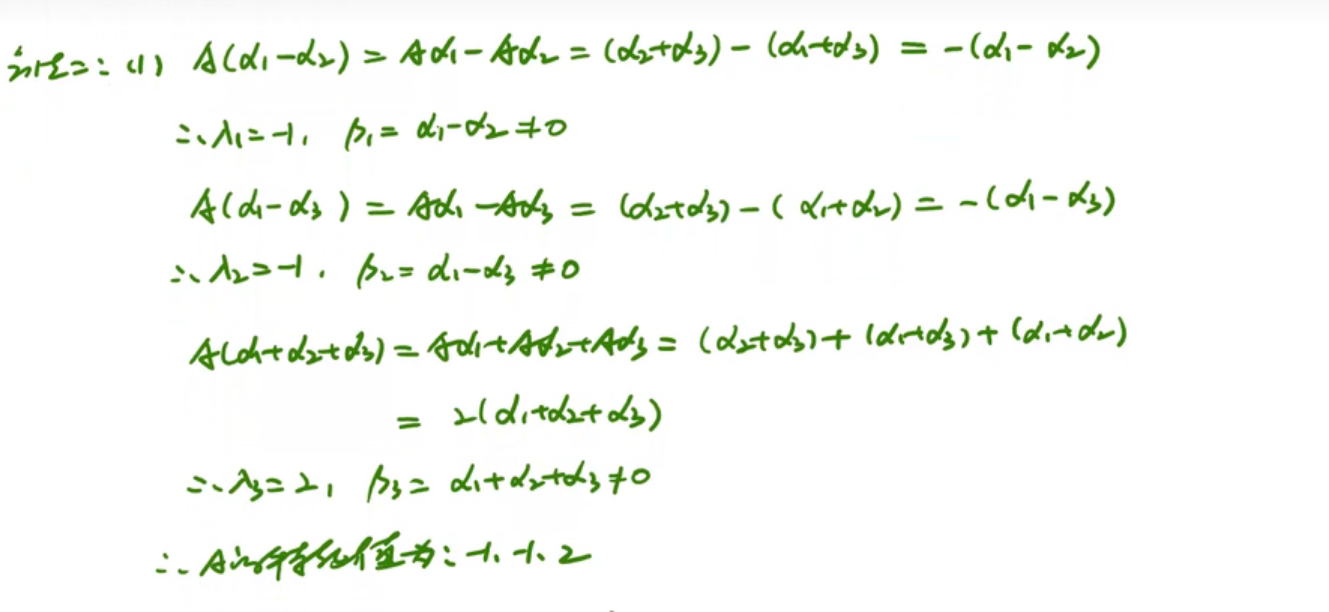 方法二: (1) A(α₁-α₂) = Aα₁-Aα₂ = (α₂+α₃) - (α₁+α₃) = -(α₁-α₂)
∴ λ₁=-1, β₁= α₁-α₂≠0
A(α₁-α₃) = Aα₁-Aα₃ = (α₂+α₃) - (α₁+α₂) = -(α₁-α₃)
∴ λ₂=-1, β₂= α₁-α₃≠0
A(α₁+α₂+α₃) = Aα₁+Aα₂+Aα₃ = (α₂+α₃) + (α₁+α₃) + (α₁+α₂)
= 2(α₁+α₂+α₃)
∴ λ₃=2, β₃= α₁+α₂+α₃≠0
∴ A的特征值为: -1. -1. 2